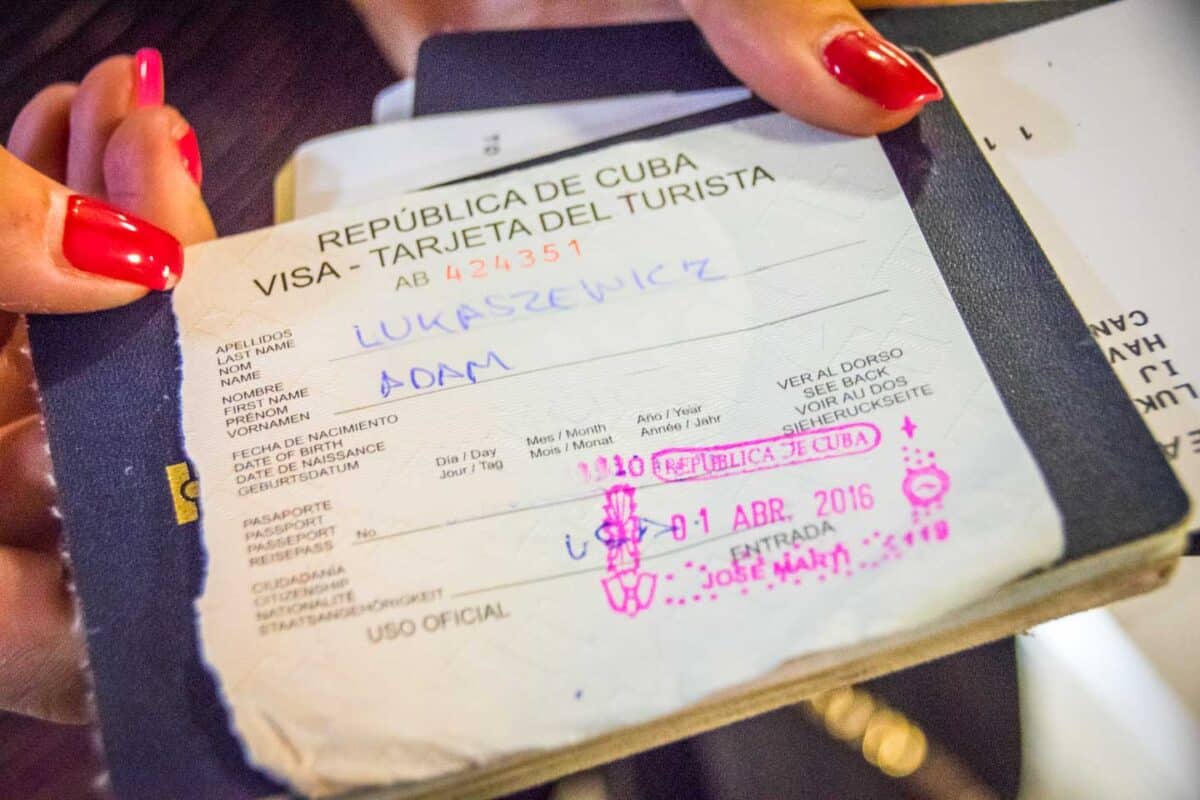 REPÚBLICA DE CUBA
VISA - TARJETA DEL TURISTA
AB 424351
APELLIDOS
LAST NAME
NOM
NAME
LUKASZEWICZ
NOMBRE
FIRST NAME
PRÉNOM
VORNAMEN
ADAM
FECHA DE NACIMIENTO
DATE OF BIRTH
DATE DE NAISSANCE
GEBURTSDATUM
Día / Day
Jour / Tag
Mes / Month
Mois / Monat
Año / Year
Année / Jahr
VER AL DORSO
SEE BACK
VOIR AU DOS
SIEHERUCKSEITE
PASAPORTE
PASSPORT
PASSEPORT
REISEPASS
No
CIUDADANÍA
CITIZENSHIP
NATIONALITÉ
STAATSANGEHÖRIGKEIT
USO OFICIAL
REPÚBLICA DE CUBA
01 ABR. 2016
ENTRADA
JOSE MARTI
119
TO
1
11
CAN
HAV
IJ
LUK